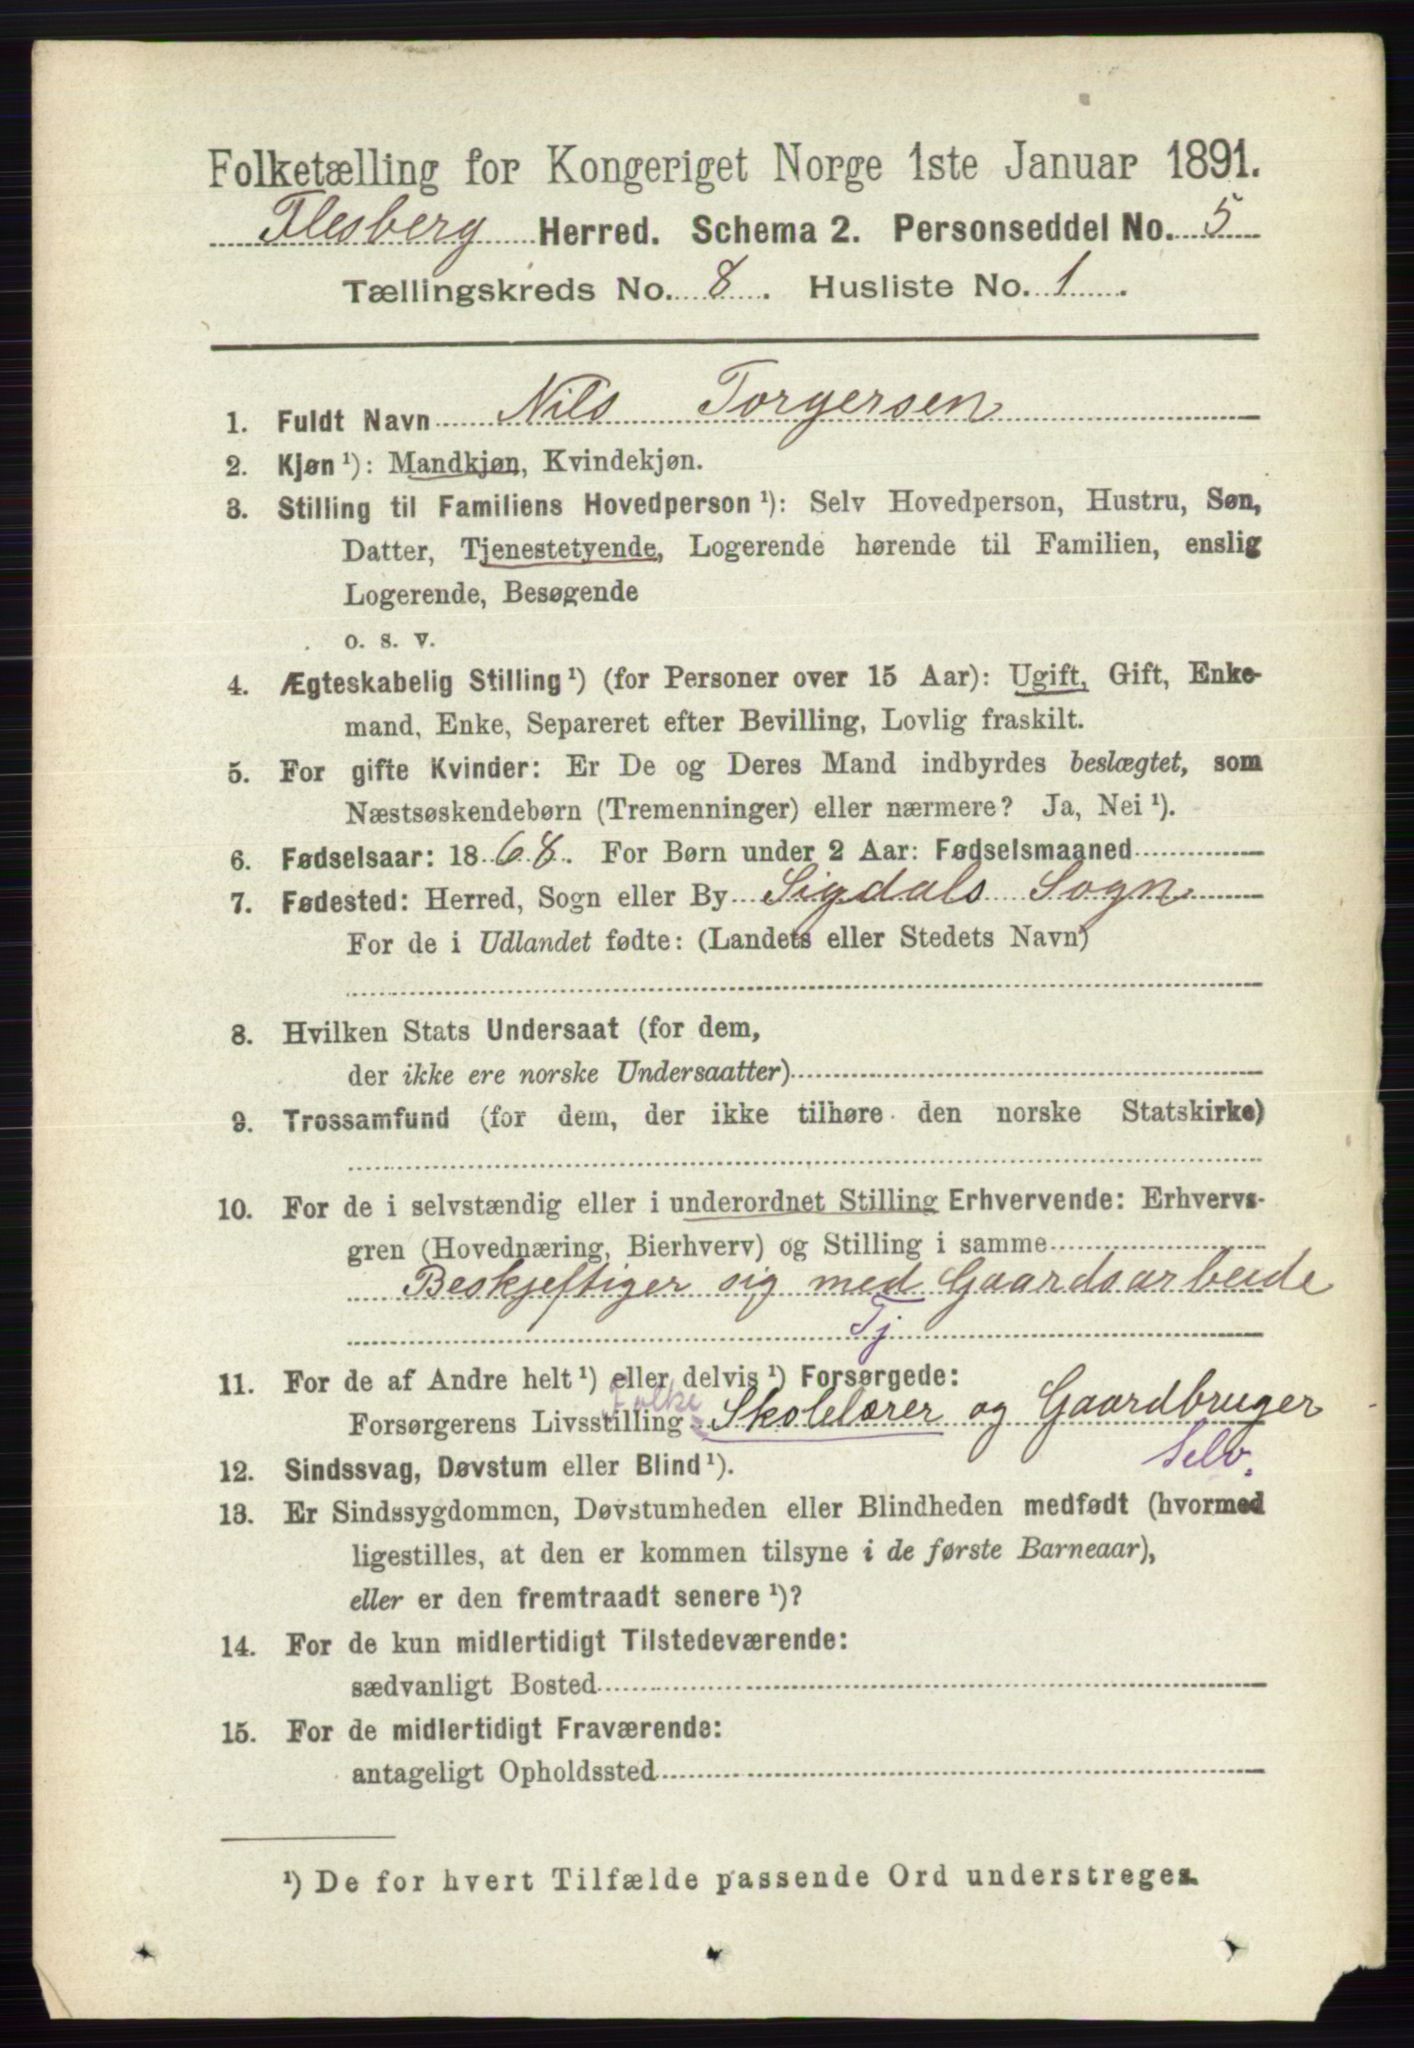 Folketælling for Kongeriget Norge 1ste Januar 1891.
Flesberg Herred. Schema 2. Personseddel No. 5
Tællingskreds No. 8. Husliste No. 1.
1. Fuldt Navn Nils Torgersen
2. Kjøn ¹): Mandkjøn, Kvindekjøn.
3. Stilling til Familiens Hovedperson ¹): Selv Hovedperson, Hustru, Søn,
Datter, Tjenestetyende, Logerende hørende til Familien, enslig
Logerende, Besøgende
o. s. v.
4. Ægteskabelig Stilling ¹) (for Personer over 15 Aar): Ugift, Gift, Enke-
mand, Enke, Separeret efter Bevilling, Lovlig fraskilt.
5. For gifte Kvinder: Er De og Deres Mand indbyrdes beslægtet, som
Næstsøskendebørn (Tremenninger) eller nærmere? Ja, Nei ¹).
6. Fødselsaar: 1868. For Børn under 2 Aar: Fødselsmaaned
7. Fødested: Herred, Sogn eller By Sigdals Sogn
For de i Udlandet fødte: (Landets eller Stedets Navn)
8. Hvilken Stats Undersaat (for dem,
der ikke ere norske Undersaatter)
9. Trossamfund (for dem, der ikke tilhøre den norske Statskirke)
10. For de i selvstændig eller i underordnet Stilling Erhvervende: Erhvervs-
gren (Hovednæring, Bierhverv) og Stilling i samme
Beskjeftiger sig med Gaardsarbeide
Tj
11. For de af Andre helt ¹) eller delvis ¹) Forsørgede:
Folke
Forsørgerens Livsstilling Skolelærer og Gaardbruger
Selv.
12. Sindssvag, Døvstum eller Blind ¹).
13. Er Sindssygdommen, Døvstumheden eller Blindheden medfødt (hvormed
ligestilles, at den er kommen tilsyne i de første Barneaar),
eller er den fremtraadt senere ¹)?
14. For de kun midlertidigt Tilstedeværende:
sædvanligt Bosted
15. For de midlertidigt Fraværende:
antageligt Opholdssted
¹) De for hvert Tilfælde passende Ord understreges.